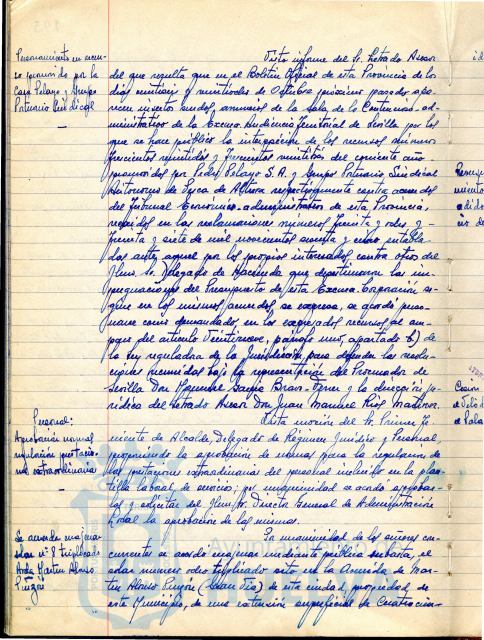 Personamiento en recur-
so promovido por la
Casa Pelayo y Grupo
Portuario Sindical
Visto informe del Sr. Letrado Asesor
del que resulta que en el Boletín Oficial de esta Provincia de los
días veintiseis y veintinueve de Octubre próximo pasado apa-
recen insertos sendos anuncios de la Sala de lo Contencioso-ad-
ministrativo de la Excma. Audiencia Territorial de Sevilla por los
que se hace público la interposición de los recursos números
trescientos y trescientos del corriente año
promovidos por Pedro Pelayo S.A. y Grupo Portuario Sindical
Autónomo de Pesca de Altura respectivamente contra acuerdos
del Tribunal Económico-administrativo de esta Provincia,
recaídos en las reclamaciones números treinta y
treinta y siete de mil novecientos sesenta y cinco entabla-
das ante aquel por los propios interesados contra oficio del
Iltmo. Sr. Delegado de Hacienda que desestimaron las im-
pugnaciones del Presupuesto de esta Excma. Corporación se-
gún en los mismos acuerdos se expresa, se acordó perso-
narse como demandado en los expresados recursos al am-
paro del artículo Veintinueve, párrafo uno, apartado b) de
la ley reguladora de la Jurisdicción para defender las resolu-
ciones recurridas bajo la representación del Procurador de
Sevilla Don Manuel Bravo-Ferrer y la dirección ju-
rídica del Letrado Asesor Don Juan Manuel
Personal:
Aprobación normas
regulación gratificacio-
nes extraordinarias
Vista moción del Sr. Primer Te-
niente de Alcalde, Delegado de Régimen Jurídico y Personal,
proponiendo la aprobación de normas para la regulación de
las gratificaciones extraordinarias del personal incluido en la plan-
tilla laboral de servicio; por unanimidad se acordó aprobar-
las y solicitar del Iltmo. Sr. Director General de Administración
Local la aprobación de las mismas.
Se acuerda enajenar
solar nº 8 triplicado
Avda Martín Alonso
Pinzón
Por unanimidad de los señores con-
currentes se acordó enajenar mediante pública subasta, el
solar número ocho triplicado sito en la Avenida de Mar-
tín Alonso Pinzón (Gran Vía) de esta ciudad, propiedad de
este Municipio, de una extensión superficial de cuatrocien-